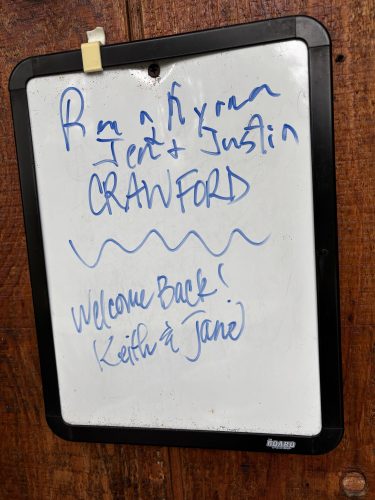 Jen & Justin
CRAWFORD
Welcome Back!
Keith & Jane
THE BOARD